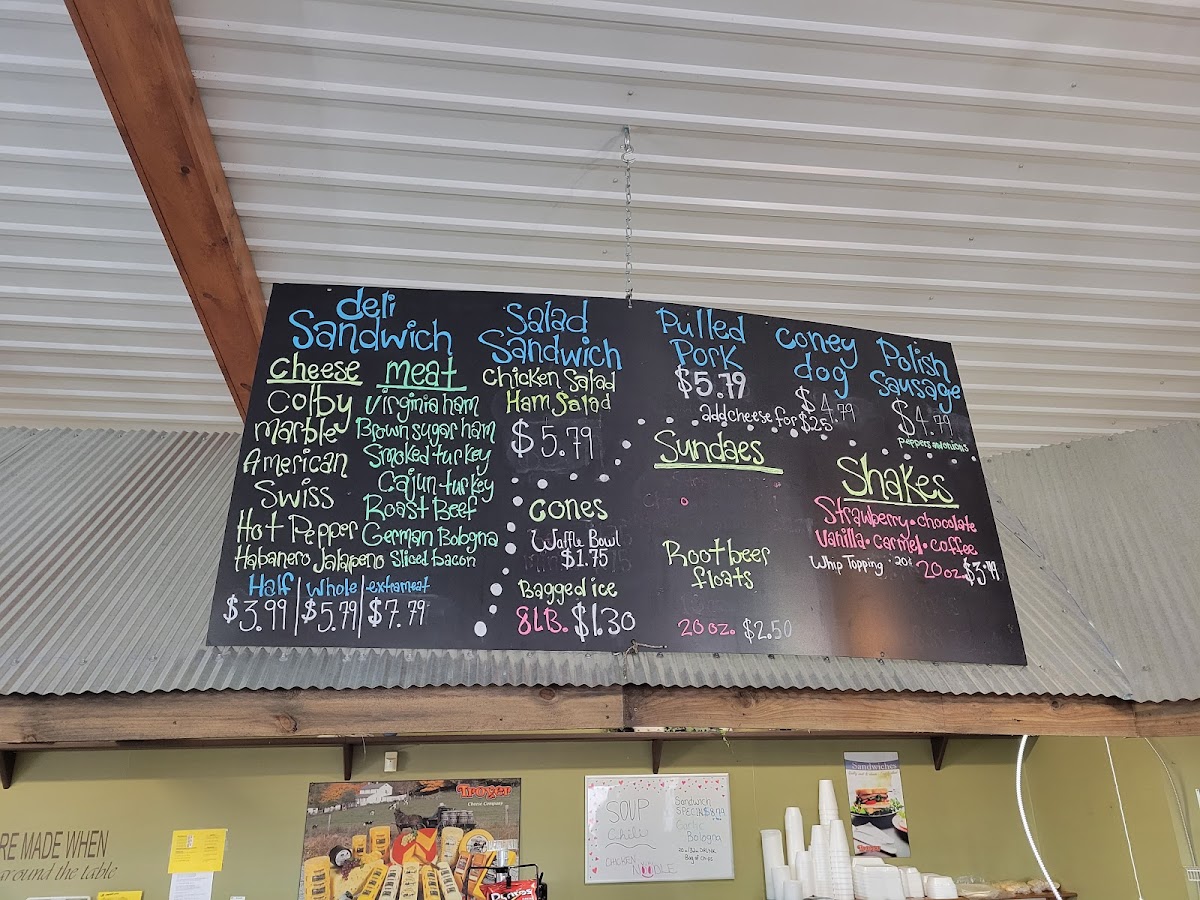 deli
Sandwich
cheese
Colby
marble
American
Swiss
Hot Pepper
Habanero Jalapeno
meat
Virginia ham
Brown sugar ham
Smoked turkey
Cajun turkey
Roast Beef
German Bologna
Sliced bacon
Half | Whole | extra meat
$3.99 | $5.79 | $7.79
Salad
Sandwich
Chicken Salad
Ham Salad
$5.79
Cones
Waffle Bowl
$1.75
Bagged ice
8LB. $1.30
Pulled
Pork
$5.79
add cheese for $.25
coney
dog
$4.79
Polish
Sausage
$4.79
Peppers and onions
Sundaes
Root beer
floats
20 oz. $2.50
Shakes
Strawberry • chocolate
Vanilla • carmel • coffee
Whip Topping
20oz.
RE MADE WHEN
around the table
Troyer
Cheese Company
SOUP
Chili
CHICKEN NOODLE
Sandwich
Bologna
Sandwiches